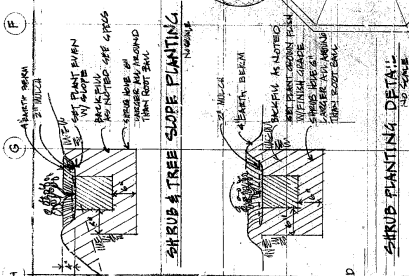 F
G
H
4" EARTH BERM
2" MULCH
SET PLANT EVEN
W/ SLOPE
BACKFILL
AS NOTED SEE SPECS
SHRUB HOLE 6"
LARGER ALL AROUND
THAN ROOT BALL
SHRUB & TREE SLOPE PLANTING
NO SCALE
2" MULCH
4" EARTH BERM
BACKFILL AS NOTED
SET PLANT CROWN FLUSH
W/ FINISH GRADE
SHRUB HOLE 6"
LARGER ALL AROUND
THAN ROOT BALL
SHRUB PLANTING DETAIL
NO SCALE
6"
6"
6"
6"
D